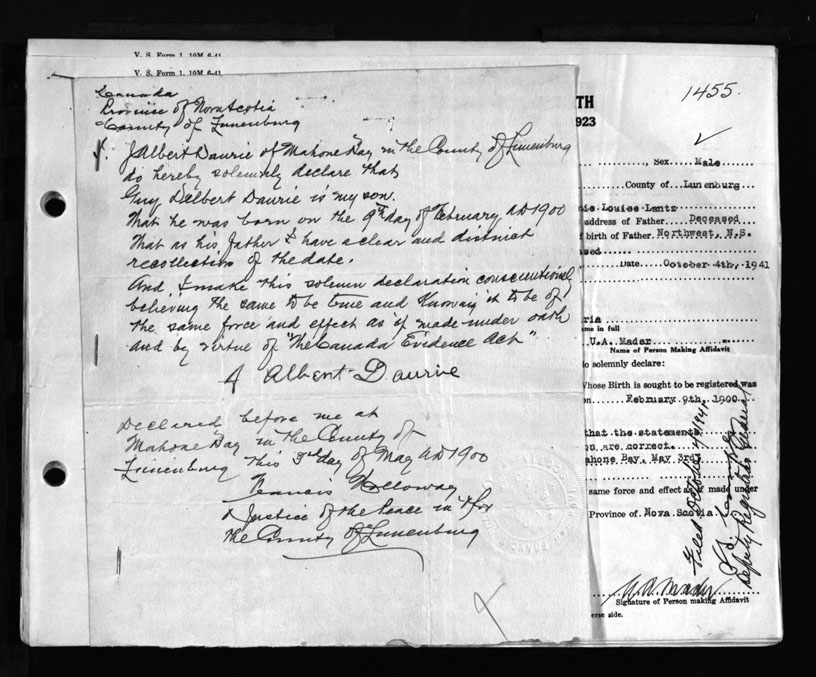 V. S. Form 1. 10M 6-41
V. S. Form 1. 10M 6-41
Canada
Province of Nova Scotia
County of Lunenburg
I, Albert Daurie of Mahone Bay in the County of Lunenburg
do hereby solemnly declare that
Guy Delbert Daurie is my son.
That he was born on the 9th day of February AD 1900
That as his father I have a clear and distinct
recollection of the date.
And I make this solemn declaration
believing the same to be true and knowing it to be of
the same force and effect as if made under oath
and by virtue of "The Canada Evidence Act"
Albert Daurie
Declared before me at
Mahone Bay in the County of
Lunenburg this 3rd day of May AD 1900
Francis Holloway
A Justice of the Peace in & for
the County of Lunenburg
1455.
TH
1923
Sex Male
County of Lunenburg
nie Louise Lantz
address of Father Deceased
f birth of Father Northwest, N.S.
sed
Date October 4th, 1941
ria
ame in full
U.A. Mader
Name of Person Making Affidavit
o solemnly declare:
Whose Birth is sought to be registered was
on February 9th. 1900.
that the statements
on are correct.
ahone Bay, May 3rd
same force and effect as if made under
Province of Nova Scotia.
Filed October 1941
Deputy Registrar General
U.A. Mader
Signature of Person making Affidavit
erse side.